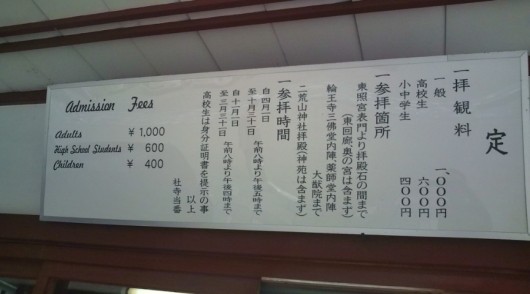 定
一 拝観料
一般 一、〇〇〇円
高校生 六〇〇円
小中学生 四〇〇円
一 参拝箇所
東照宮表門より拝殿石の間まで
(東回廊・奥の宮は含まず)
輪王寺三佛堂内陣・薬師堂内陣
大猷院まで
二荒山神社拝殿(神苑は含まず)
一 参拝時間
自 四月一日
至 十月三十一日
午前八時より午後五時まで
自 十一月一日
至 三月三十一日
午前八時より午後四時まで
高校生は身分証明書を提示の事
以上
社寺当番
Admission Fees
Adults ¥ 1,000
High School Students ¥ 600
Children ¥ 400